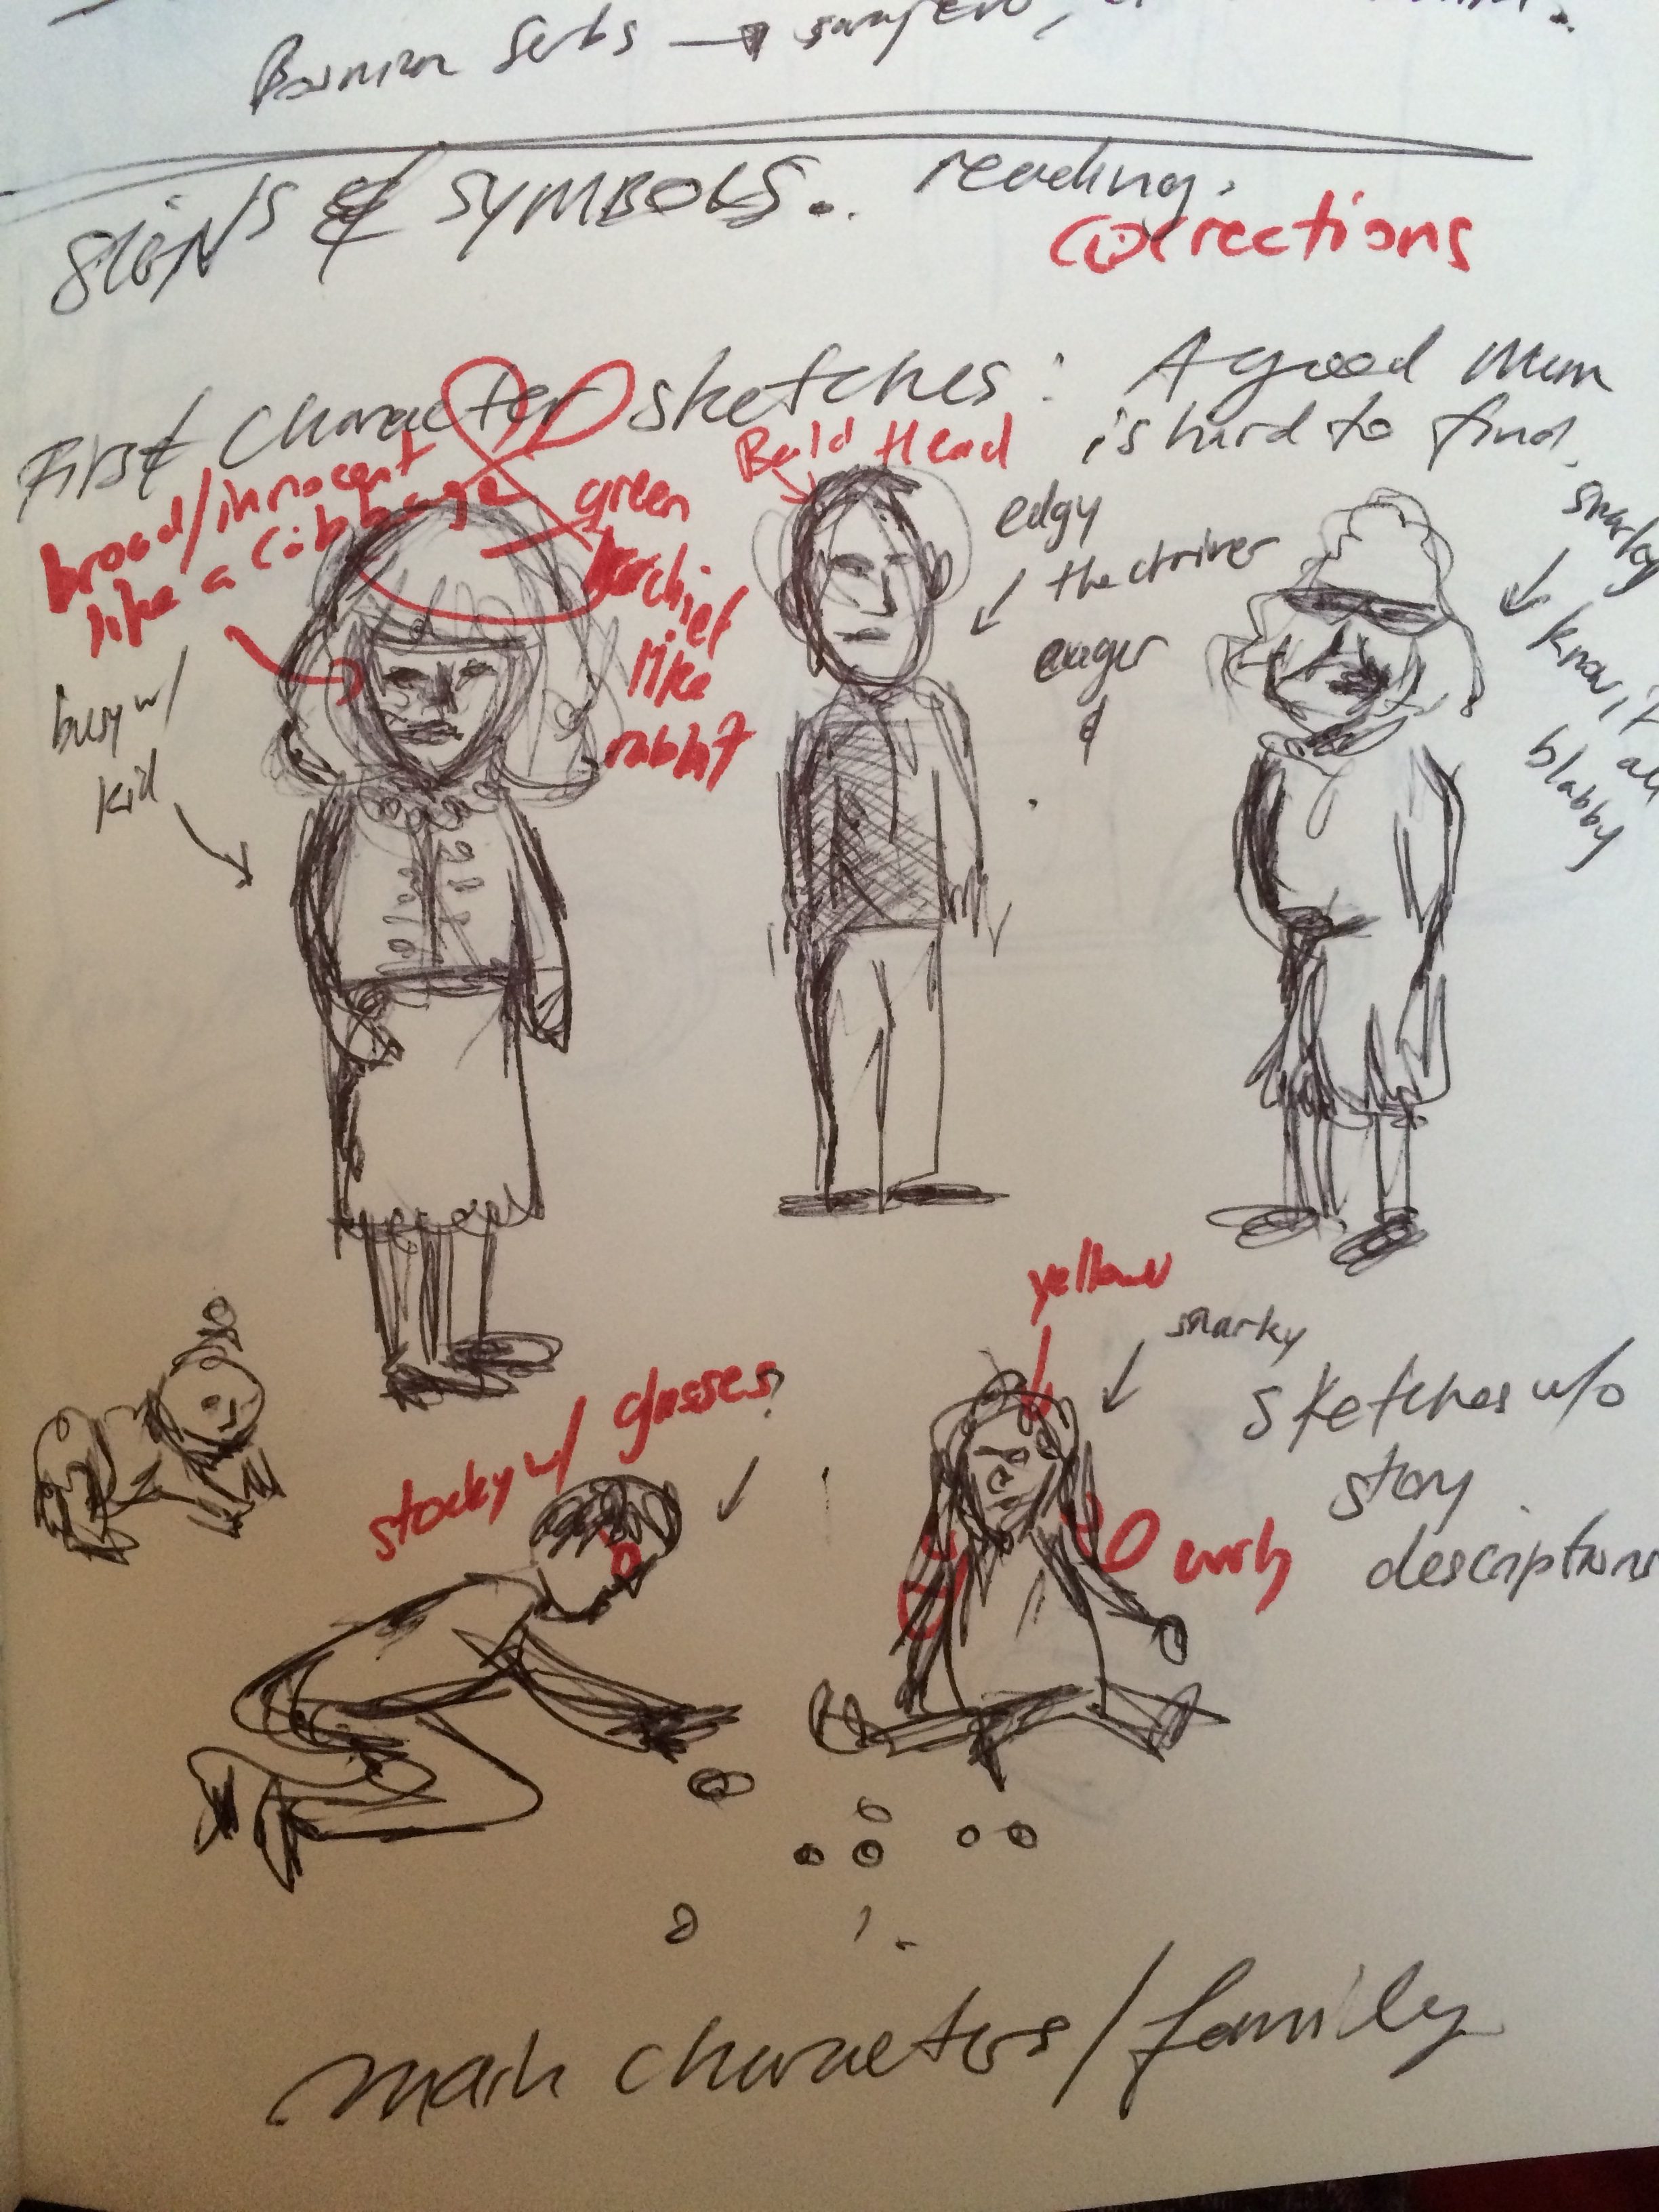 Bosnian Serbs →
SIGNS & SYMBOLS.. reading.
corrections
First character sketches: A good man
is hard to find.
broad/innocent
like a cabbage
green
kerchief
like
rabbit
Bald Head
edgy
the driver
eager
&
snarky
know it all
blabby
busy w/
kid
yellow
snarky
stocky w/ glasses
?
curly
sketches w/o
story
descriptions
main characters/family